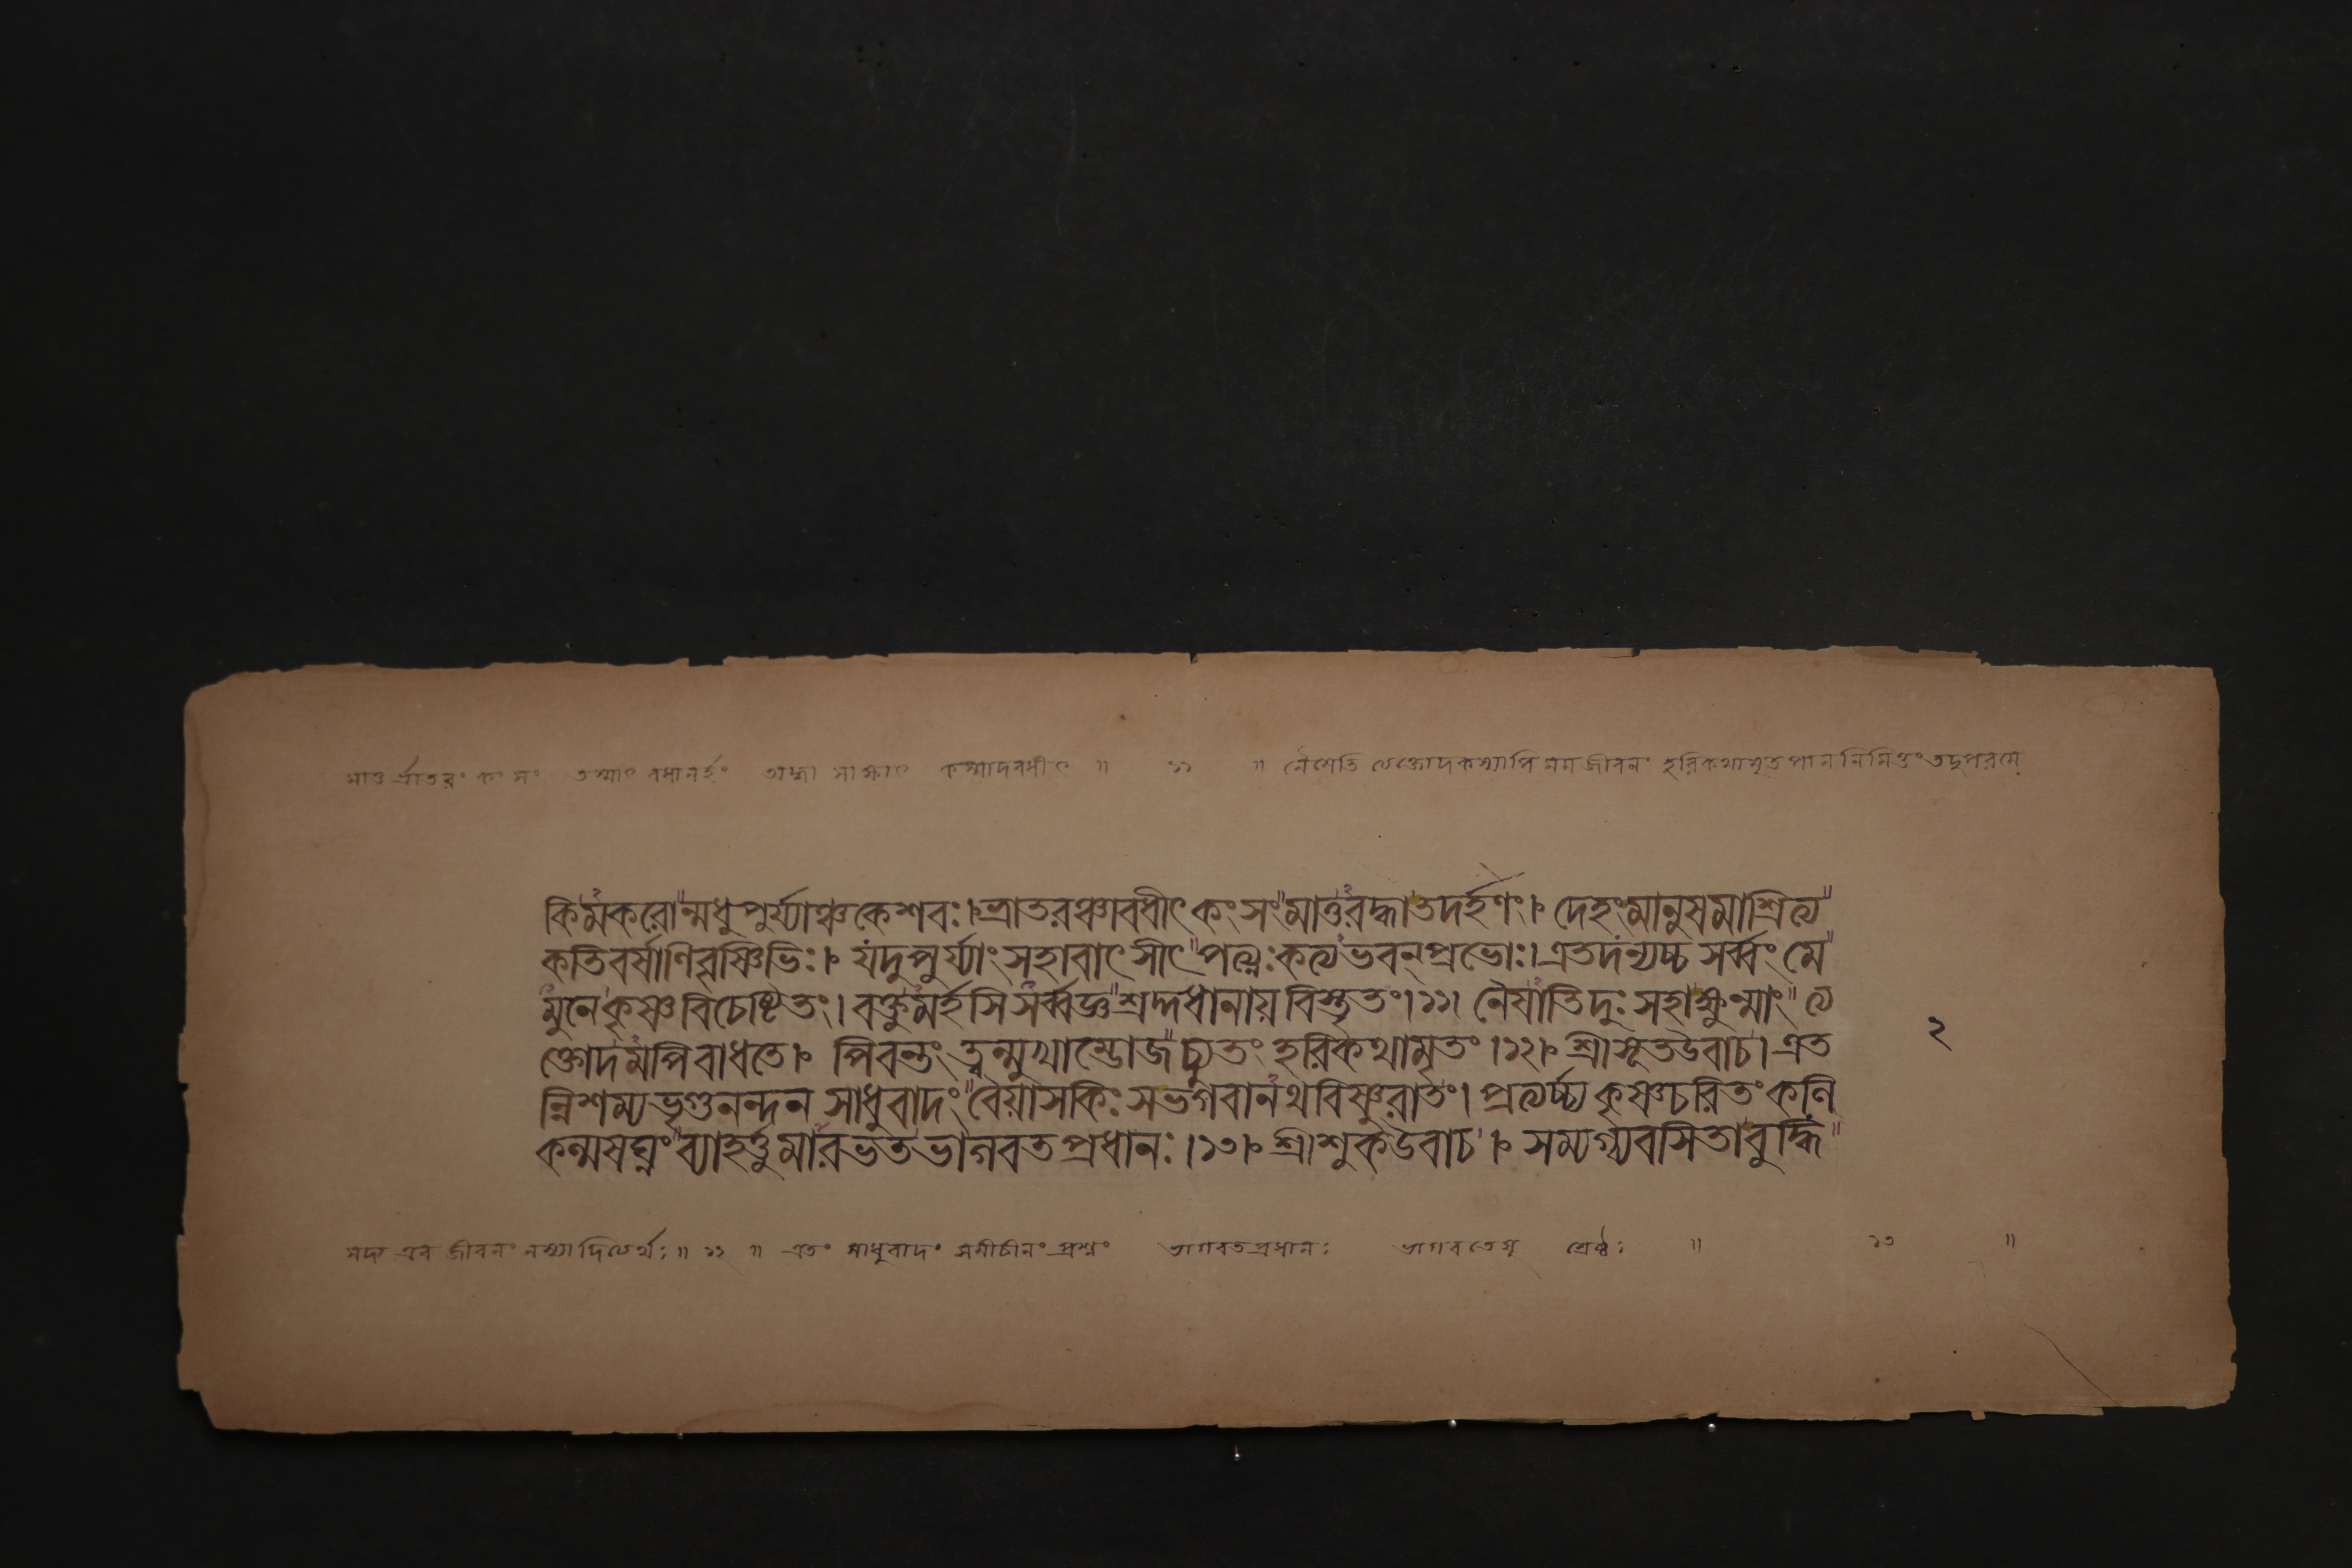 মাতুর্ভ্রাতরং কংসং তস্মাৎ বধানর্হং অদ্ধা সাক্ষাৎ কস্মাদবধীৎ ॥ ১১ ॥ নৈষেতি ত্যক্তোদকস্যাপি মম জীবনং হরিকথামৃতপাননিমিত্তং তদুপরমে
কিমকরোন্মধুপুর্য্যাঞ্চকেশবঃ।ভ্রাতরঞ্চাবধীৎ কংসং মাতুরদ্ধাতদর্হণং। দেহংমানুষমাশ্রিত্য
কতিবর্ষাণিবৃষ্ণিভিঃ। যদুপুর্য্যাংসহাবাৎসীৎ পত্ন্যঃকত্যভবন্প্রভোঃ।এতদন্যচ্চ সর্ব্বং মে
মুনেকৃষ্ণবিচেষ্টিতং। বক্তুমর্হসিসর্ব্বজ্ঞশ্রদ্দধানায়বিস্তৃতং।১১। নৈষাতিদুঃসহাক্ষুন্মাং ত্য
ক্তোদমপিবাধতে। পিবন্তং ত্বন্মুখাম্ভোজচ্যুতং হরিকথামৃতং।১২। শ্রীসূতউবাচ। এত
ন্নিশম্যভৃগুনন্দন সাধুবাদং বৈয়াসকিঃ সভগবানথবিষ্ণুরাতং। প্রত্যর্চ্চ্য কৃষ্ণচরিতং কলি
কল্মষঘ্নং ব্যাহর্ত্তুমারভতভাগবতপ্রধানঃ।১৩। শ্রীশুকউবাচ। সম্যগ্ব্যবসিতাবুদ্ধি
২
সদ্য এব জীবনং নস্যাদিত্যর্থঃ॥ ১২ ॥ এতং সাধুবাদং সমীচীনং প্রশ্নং ভাগবতপ্রধানঃ ভাগবতেষু শ্রেষ্ঠঃ ॥ ১৩ ॥